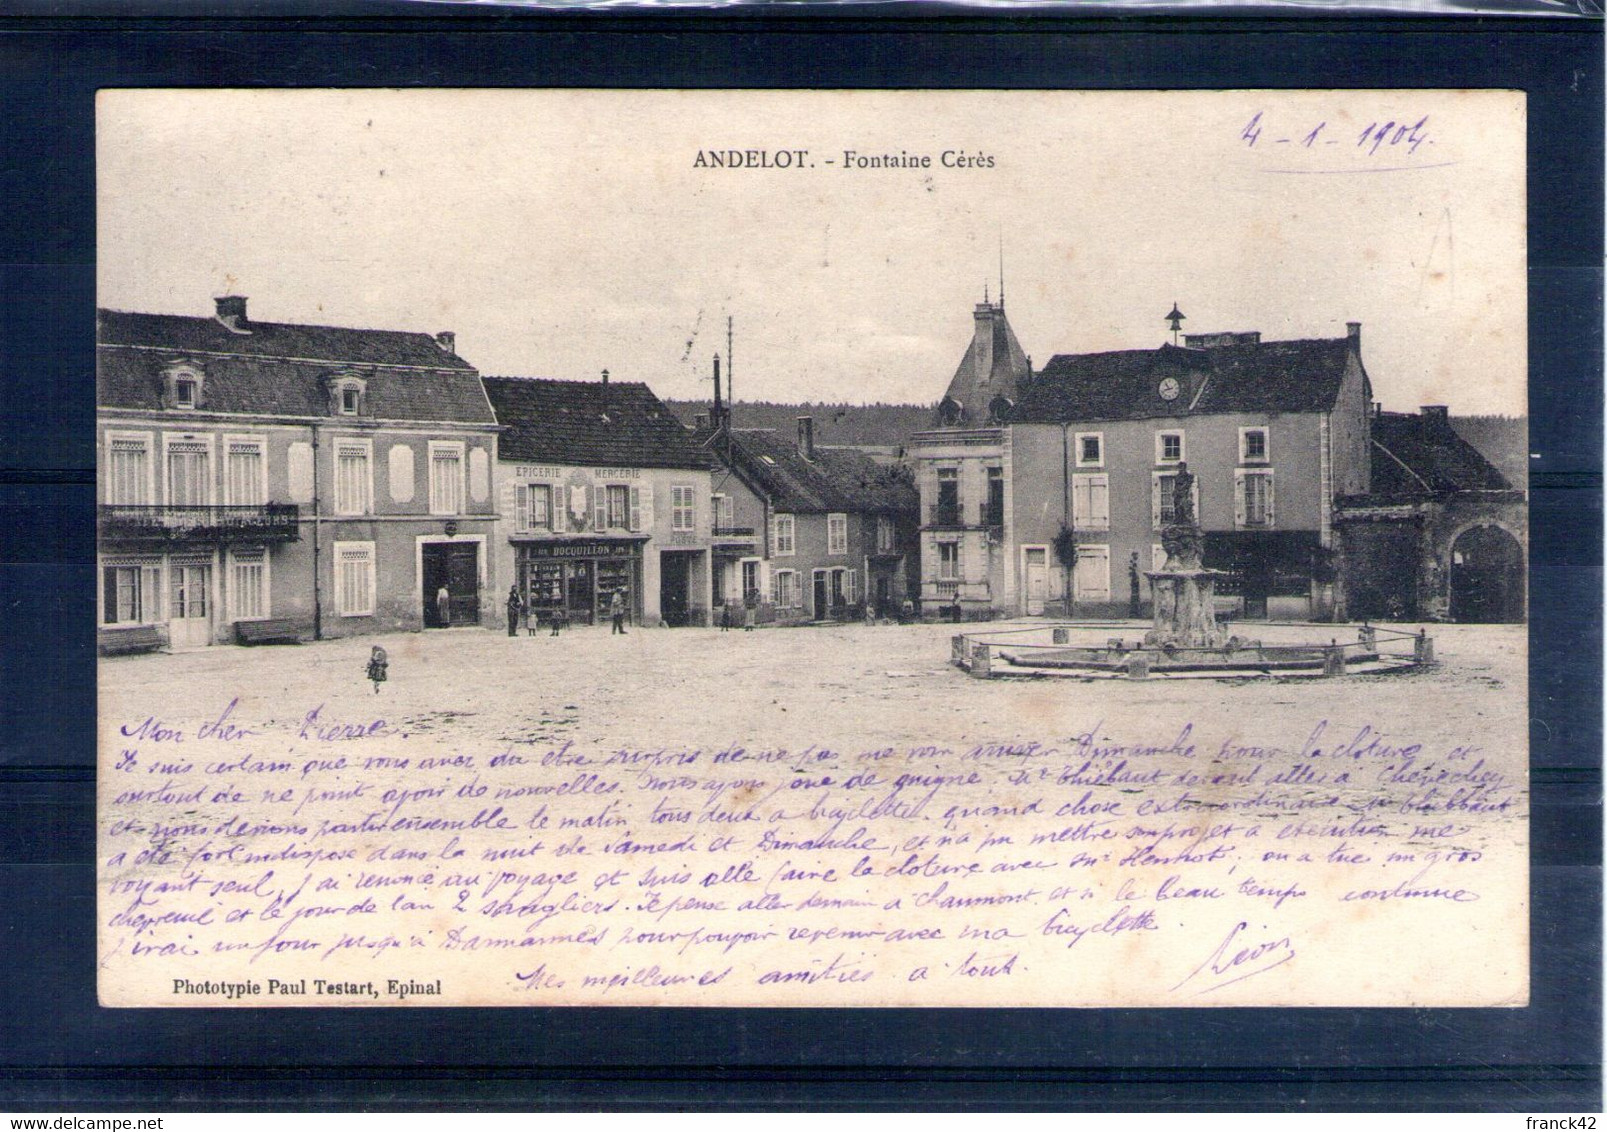 ANDELOT. - Fontaine Cérès
4 - 1 - 1904.
EPICERIE MERCERIE
BOCQUILLON
POSTE
Mon cher Pierre.
Je suis certain que vous avez du etre surpris de ne pas me voir arriver Dimanche pour la cloture et
surtout de ne point avoir de nouvelles. Nous avons joué de guigne. Mr Thiébaut devait aller à
et nous devions partir ensemble le matin tous deux a bicyclette. quand chose extraordinaire Mr Thiébaut
a été fort indisposé dans la nuit de Samedi et Dimanche, et n'a pu mettre son projet a execution me
voyant seul, j'ai renoncé au voyage et suis allé faire la cloture avec Mr Henriot; on a tué un gros
chevreuil et le jour de l'an 2 sangliers. Je pense aller demain à Chaumont. et si le beau temps continue
j'irai un jour jusqu'à pour pouvoir revenir avec ma bicyclette.
Mes meilleures amitiés a tous.
Léon
Phototypie Paul Testart, Epinal
franck42